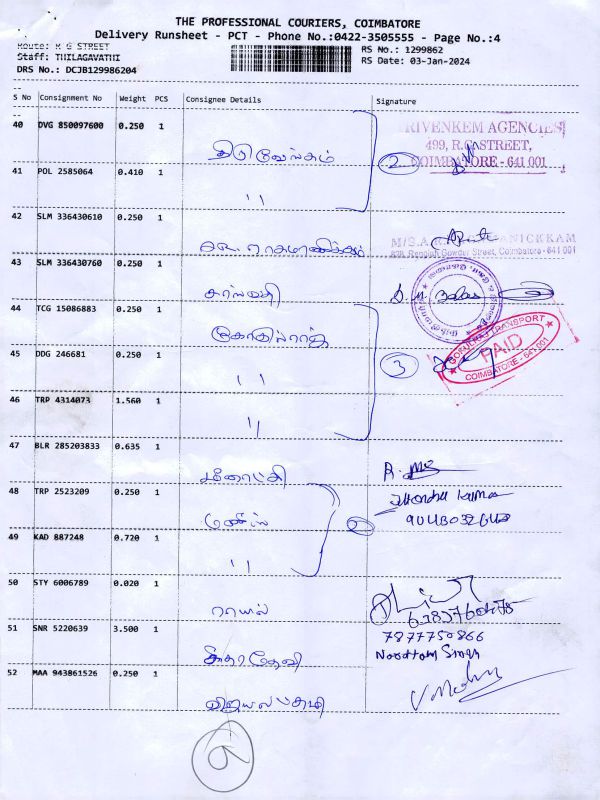 THE PROFESSIONAL COURIERS, COIMBATORE
Delivery Runsheet - PCT - Phone No.:0422-3505555 - Page No.:4
Route: M G STREET
RS No.: 1299862
Staff: THILAGAVATHI
RS Date: 03-Jan-2024
DRS No.: DCJB129986204
S No Consignment No Weight PCS Consignee Details Signature
40 DVG 850097600 0.250 1
RIVENKEM AGENCIES
499, R.G.STREET,
COIMBATORE - 641 001
திருவேங்கடம்
2
41 POL 2585064 0.410 1
"
42 SLM 336430610 0.250 1
43 SLM 336430760 0.250 1
44 TCG 15086883 0.250 1
GOKULRAJ TRANSPORT
PAID
COIMBATORE - 641 001
45 DDG 246681 0.250 1
"
3
46 TRP 4314073 1.560 1
"
47 BLR 285203833 0.635 1
மீனாட்சி
48 TRP 2523209 0.250 1
2
49 KAD 887248 0.720 1
"
50 STY 6006789 0.020 1
ராயல்
7877750866
51 SNR 5220639 3.500 1
52 MAA 943861526 0.250 1
விஜயலட்சுமி